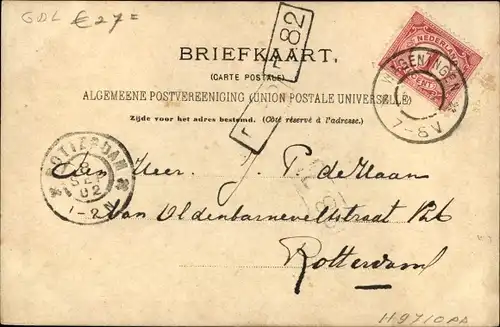 GDL € 27=
BRIEFKAART.
(CARTE POSTALE)
ALGEMEENE POSTVEREENIGING (UNION POSTALE UNIVERSELLE)
Zijde voor het adres bestemd. (Côté réservé à l'adresse.)
82
NEDERLAND
CENT
WAGENINGEN
7-8V
ROTTERDAM
8
SEP
02
1-2N
Den Heer J. P. de Haan
Van Oldenbarneveltstraat
Rotterdam
H9710PA